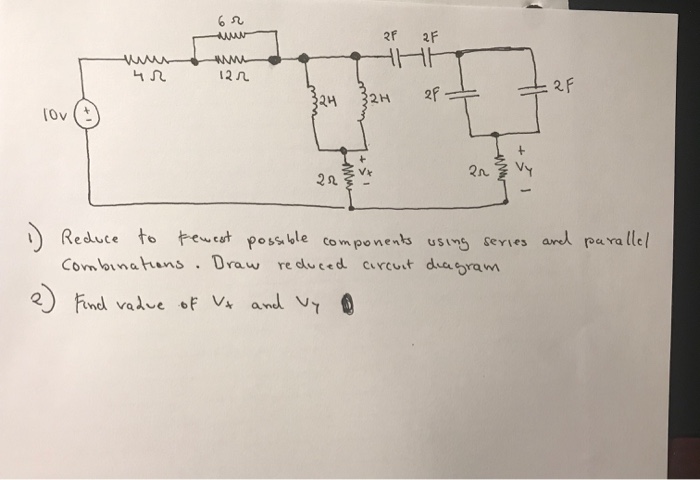 6 Ω
4 Ω
12 Ω
2F 2F
10v
+
-
2H
2H
2F
2F
2Ω
+
Vx
-
2Ω
+
Vy
-
1) Reduce to fewest possible components using series and parallel
Combinations. Draw reduced circuit diagram
2) Find vadue of Vx and Vy